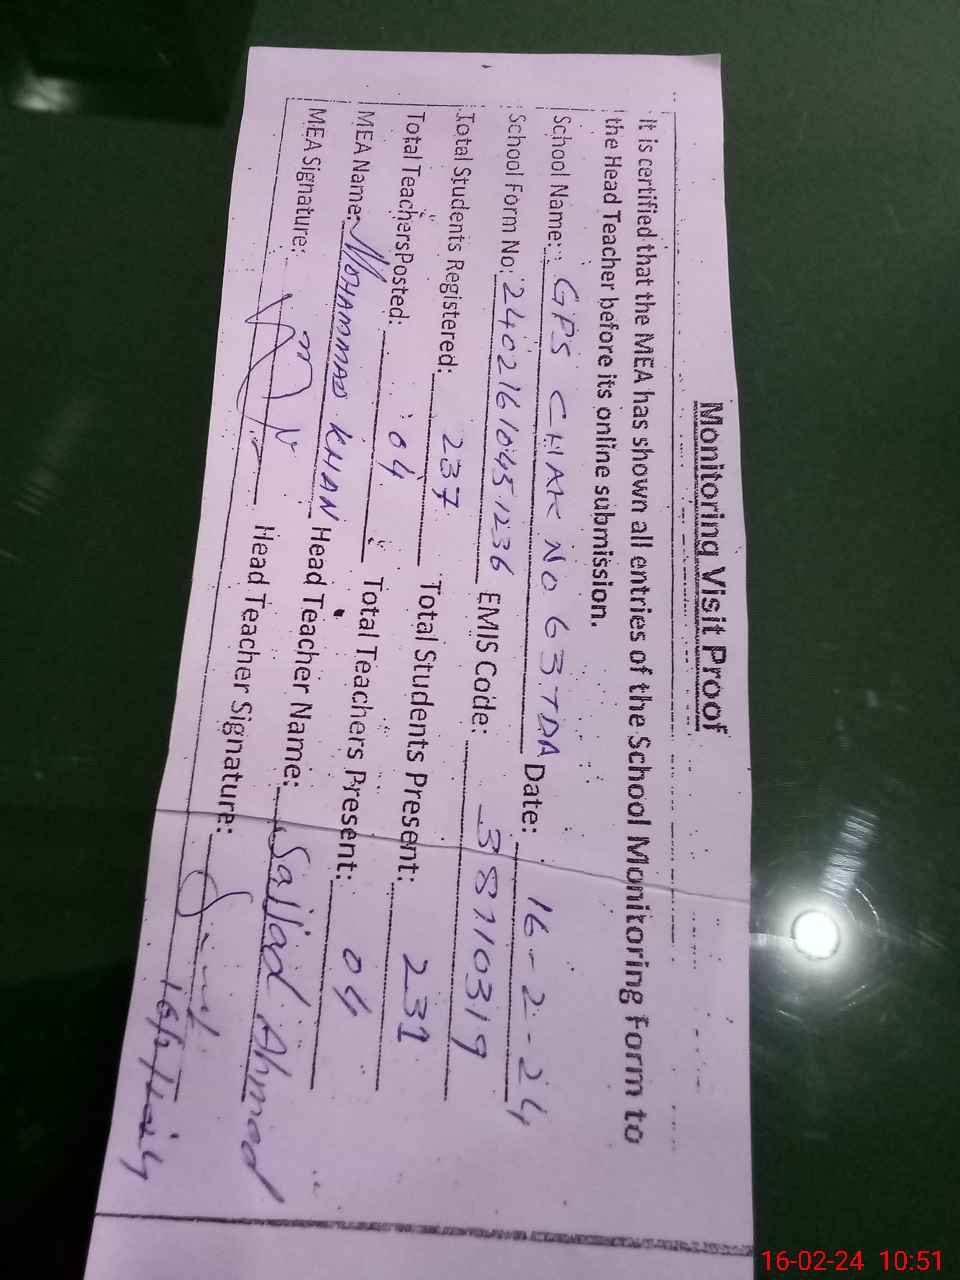 Monitoring Visit Proof
It is certified that the MEA has shown all entries of the School Monitoring Form to
the Head Teacher before its online submission.
School Name: GPS CHAK NO 63 TDA Date: 16-2-24
School Form No: 24021610451236 EMIS Code: 38710319
Total Students Registered: 237 Total Students Present: 231
Total Teachers Posted: 04 Total Teachers Present: 04
MEA Name: MOHAMMAD KHAN Head Teacher Name: Sajjad Ahmad
MEA Signature: Head Teacher Signature:
16-02-24 10:51